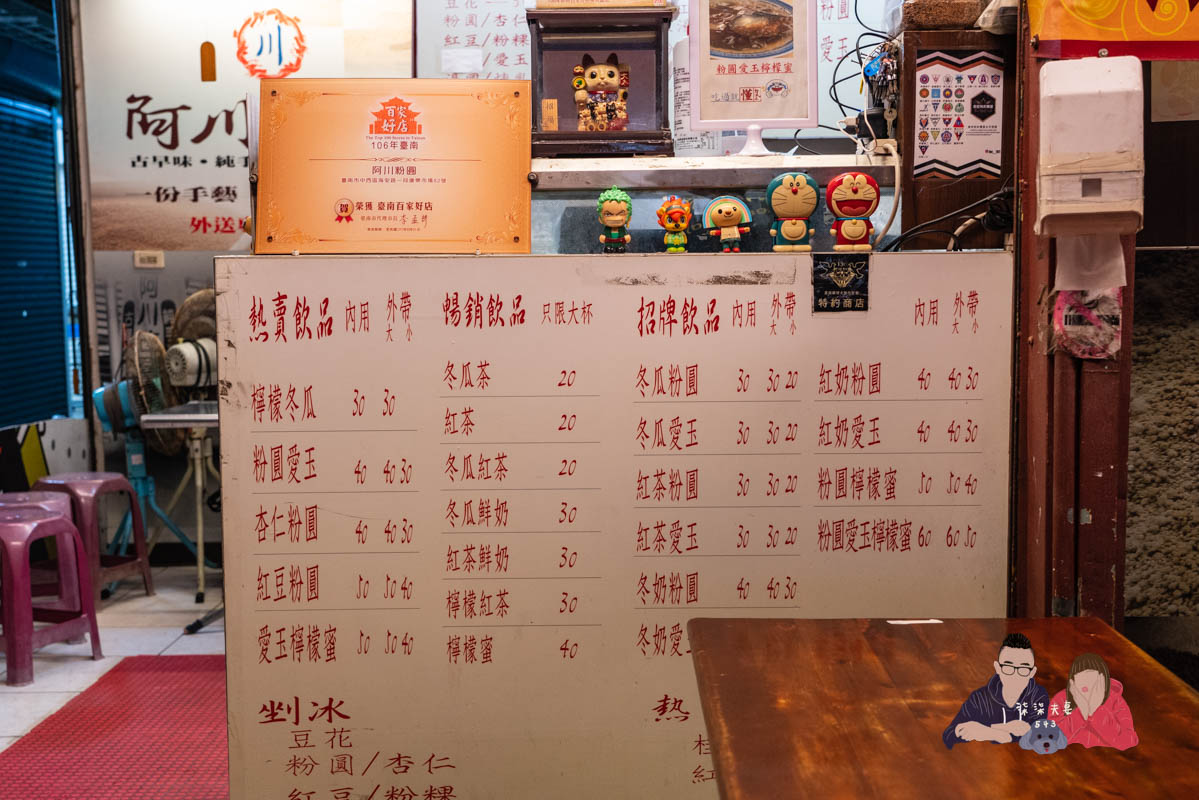 豆花
粉圓/杏仁
紅豆/粉
粉圓
愛玉
川
阿川
古早味·純手
一份手藝
外送
百家好店
The Top 100 Stores in Tainan
106年臺南
阿川粉圓
榮獲 臺南百家好店
粉圓愛玉檸檬蜜
吃過就懂了
招
特約商店
熱賣飲品 內用 外帶 大 小
檸檬冬瓜 30 30
粉圓愛玉 40 40 30
杏仁粉圓 40 40 30
紅豆粉圓 50 50 40
愛玉檸檬蜜 50 50 40
暢銷飲品 只限大杯
冬瓜茶 20
紅茶 20
冬瓜紅茶 20
冬瓜鮮奶 30
紅茶鮮奶 30
檸檬紅茶 30
檸檬蜜 40
招牌飲品 內用 外帶 大 小
冬瓜粉圓 30 30 20
冬瓜愛玉 30 30 20
紅茶粉圓 30 30 20
紅茶愛玉 30 30 20
冬奶粉圓 40 40 30
冬奶愛
內用 外帶 大 小
紅奶粉圓 40 40 30
紅奶愛玉 40 40 30
粉圓檸檬蜜 50 50 40
粉圓愛玉檸檬蜜 60 60 50
剉冰
豆花
粉圓/杏仁
紅豆/粉粿
熱
紅
柒柒夫妻
543